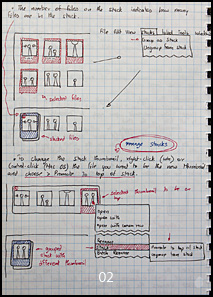 • The number of files on the stack indicates how many
files are in the stack.
File Edit View Stacks Label Tools Window
Group as Stack
Ungroup from Stack
selected files
stacked files
manage stacks
• To change the stack thumbnail, right-click (win) or
control-click (Mac OS) the file you want to be the new thumbnail
and choose > Promote to top of stack.
selected thumbnail to be on top
open
open with
open with camera raw
Rename
Batch Rename
Promote to top of stack
ungroup from stack
= grouped
stack with
different thumbnail
02